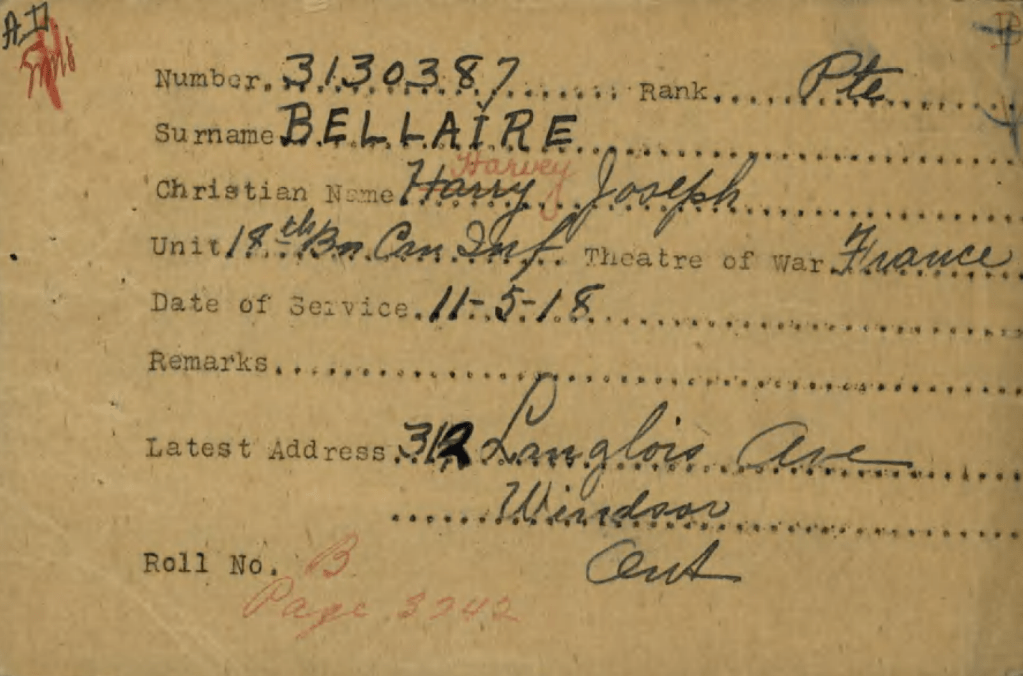 A.D.
Number. 3130387 Rank. Pte
Surname BELLAIRE
Harvey
Christian Name Harry Joseph
Unit 18th Bn Can Inf. Theatre of War France
Date of Service. 11-5-18
Remarks
Latest Address 312 Langlois Ave
Windsor
Roll No. B. Ont
Page 3242